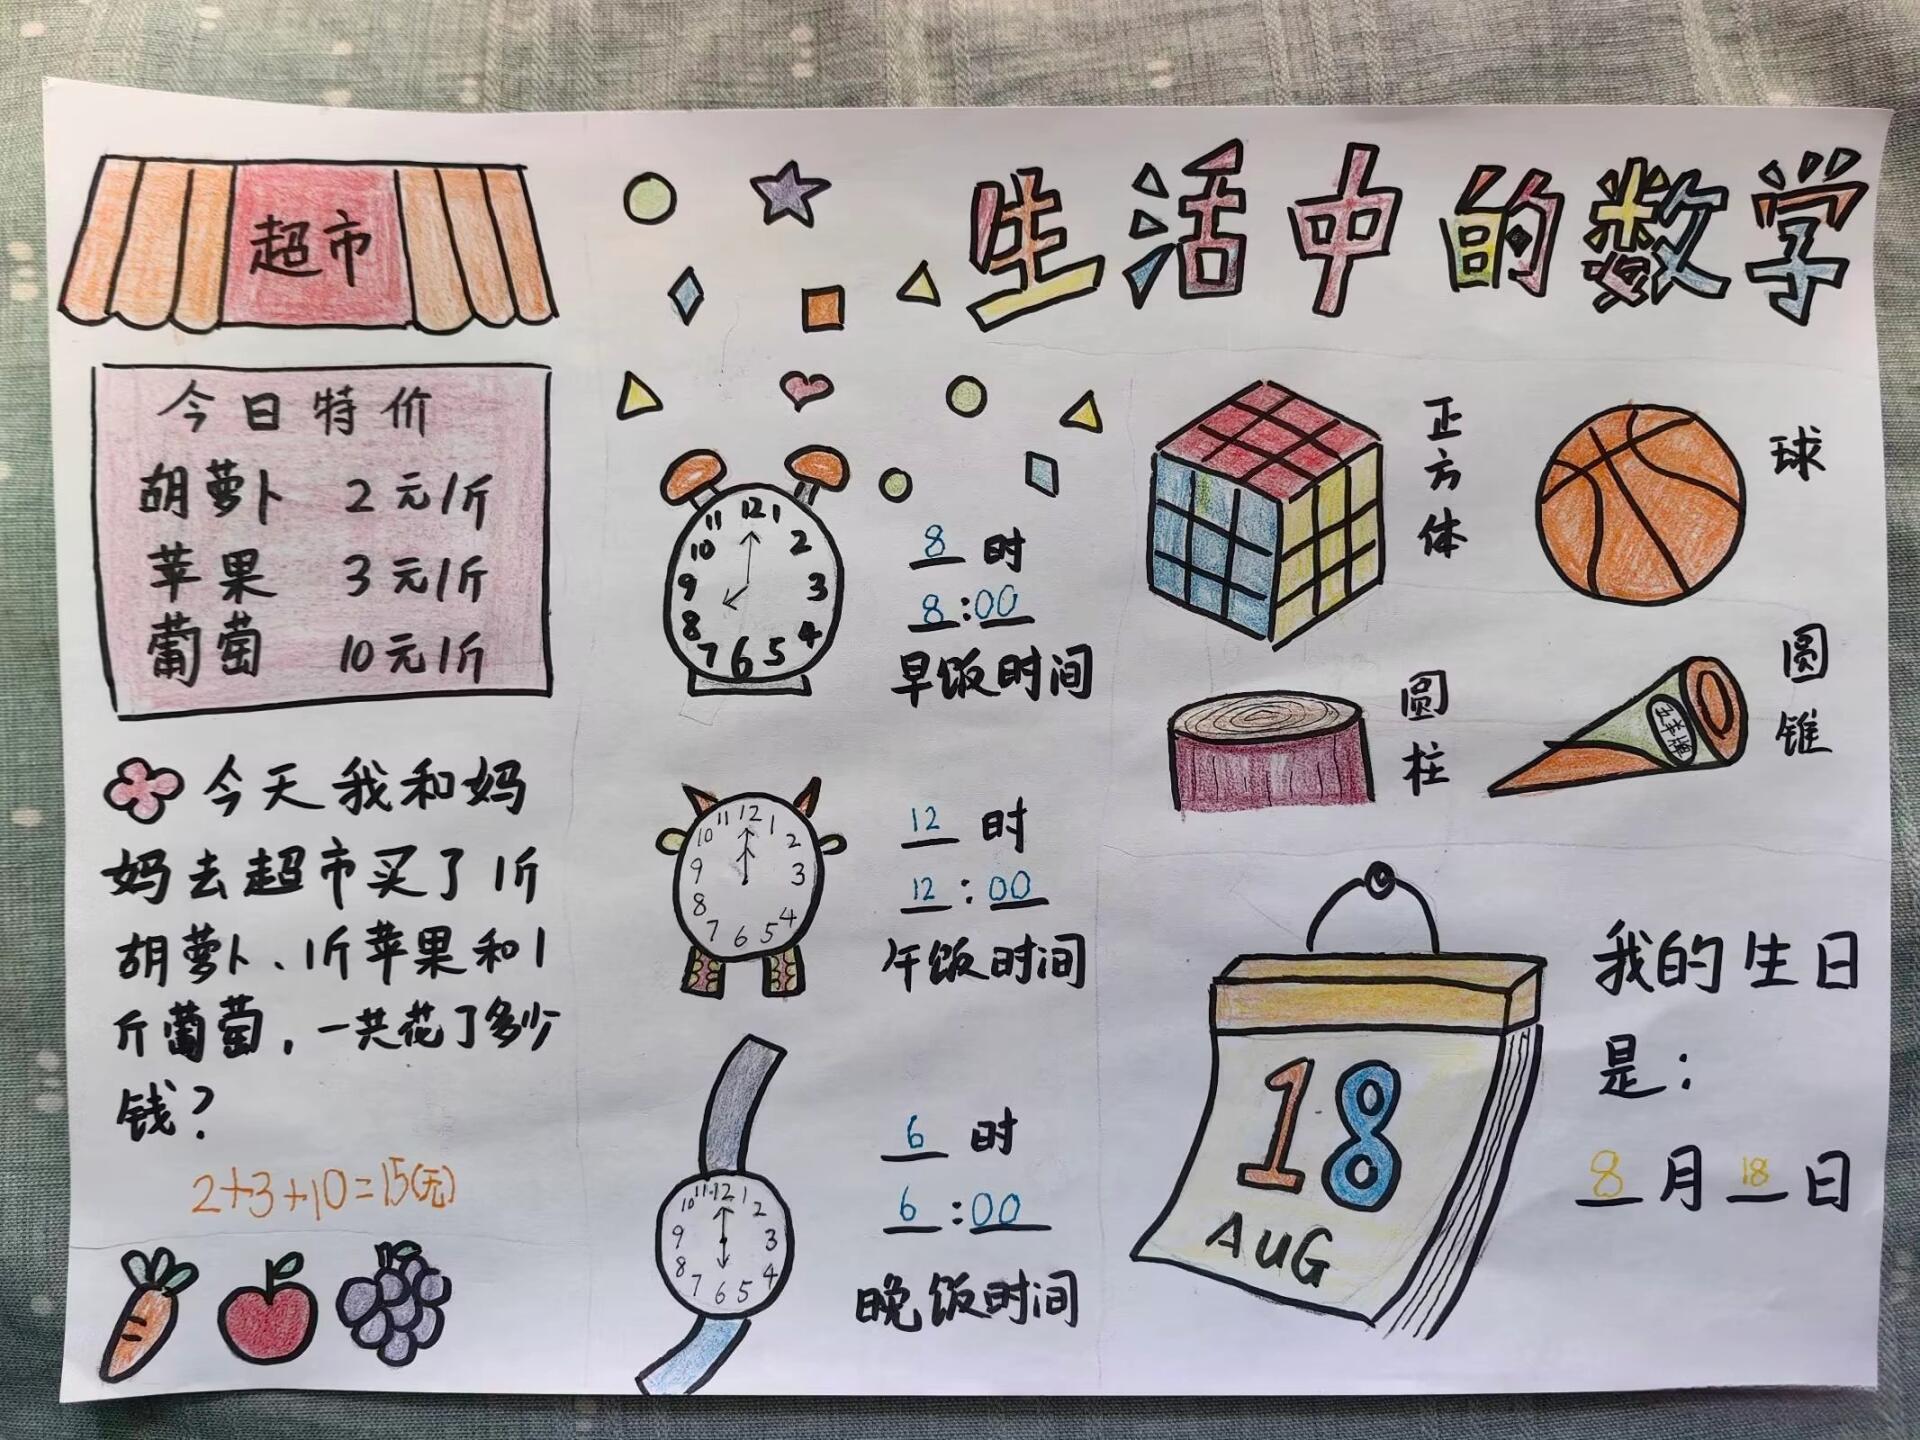 生活中的数学
超市
今日特价
胡萝卜 2元/斤
苹果 3元/斤
葡萄 10元/斤
今天我和妈
妈去超市买了1斤
胡萝卜、1斤苹果和1
斤葡萄，一共花了多少
钱？
2+3+10=15(元)
12 1 2 3 4 5 6 7 8 9 10 11
8时
8:00
早饭时间
12 1 2 3 4 5 6 7 8 9 10 11
12时
12:00
午饭时间
12 1 2 3 4 5 6 7 8 9 10 11
6时
6:00
晚饭时间
正方体
球
圆柱
圆锥
18
AUG
我的生日
是：
8月18日